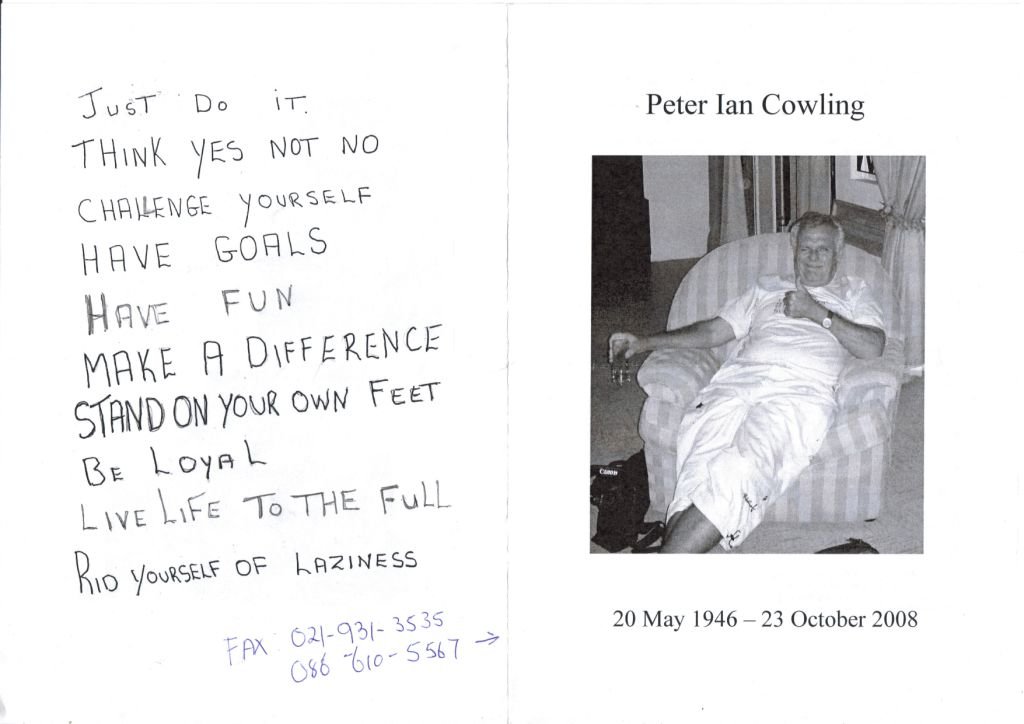 JUST DO IT.
THINK YES NOT NO
CHALLENGE YOURSELF
HAVE GOALS
HAVE FUN
MAKE A DIFFERENCE
STAND ON YOUR OWN FEET
BE LOYAL
LIVE LIFE TO THE FULL
RID YOURSELF OF LAZINESS
FAX 021-931-3535
086 610-5567 →
Peter Ian Cowling
Canon
20 May 1946 – 23 October 2008